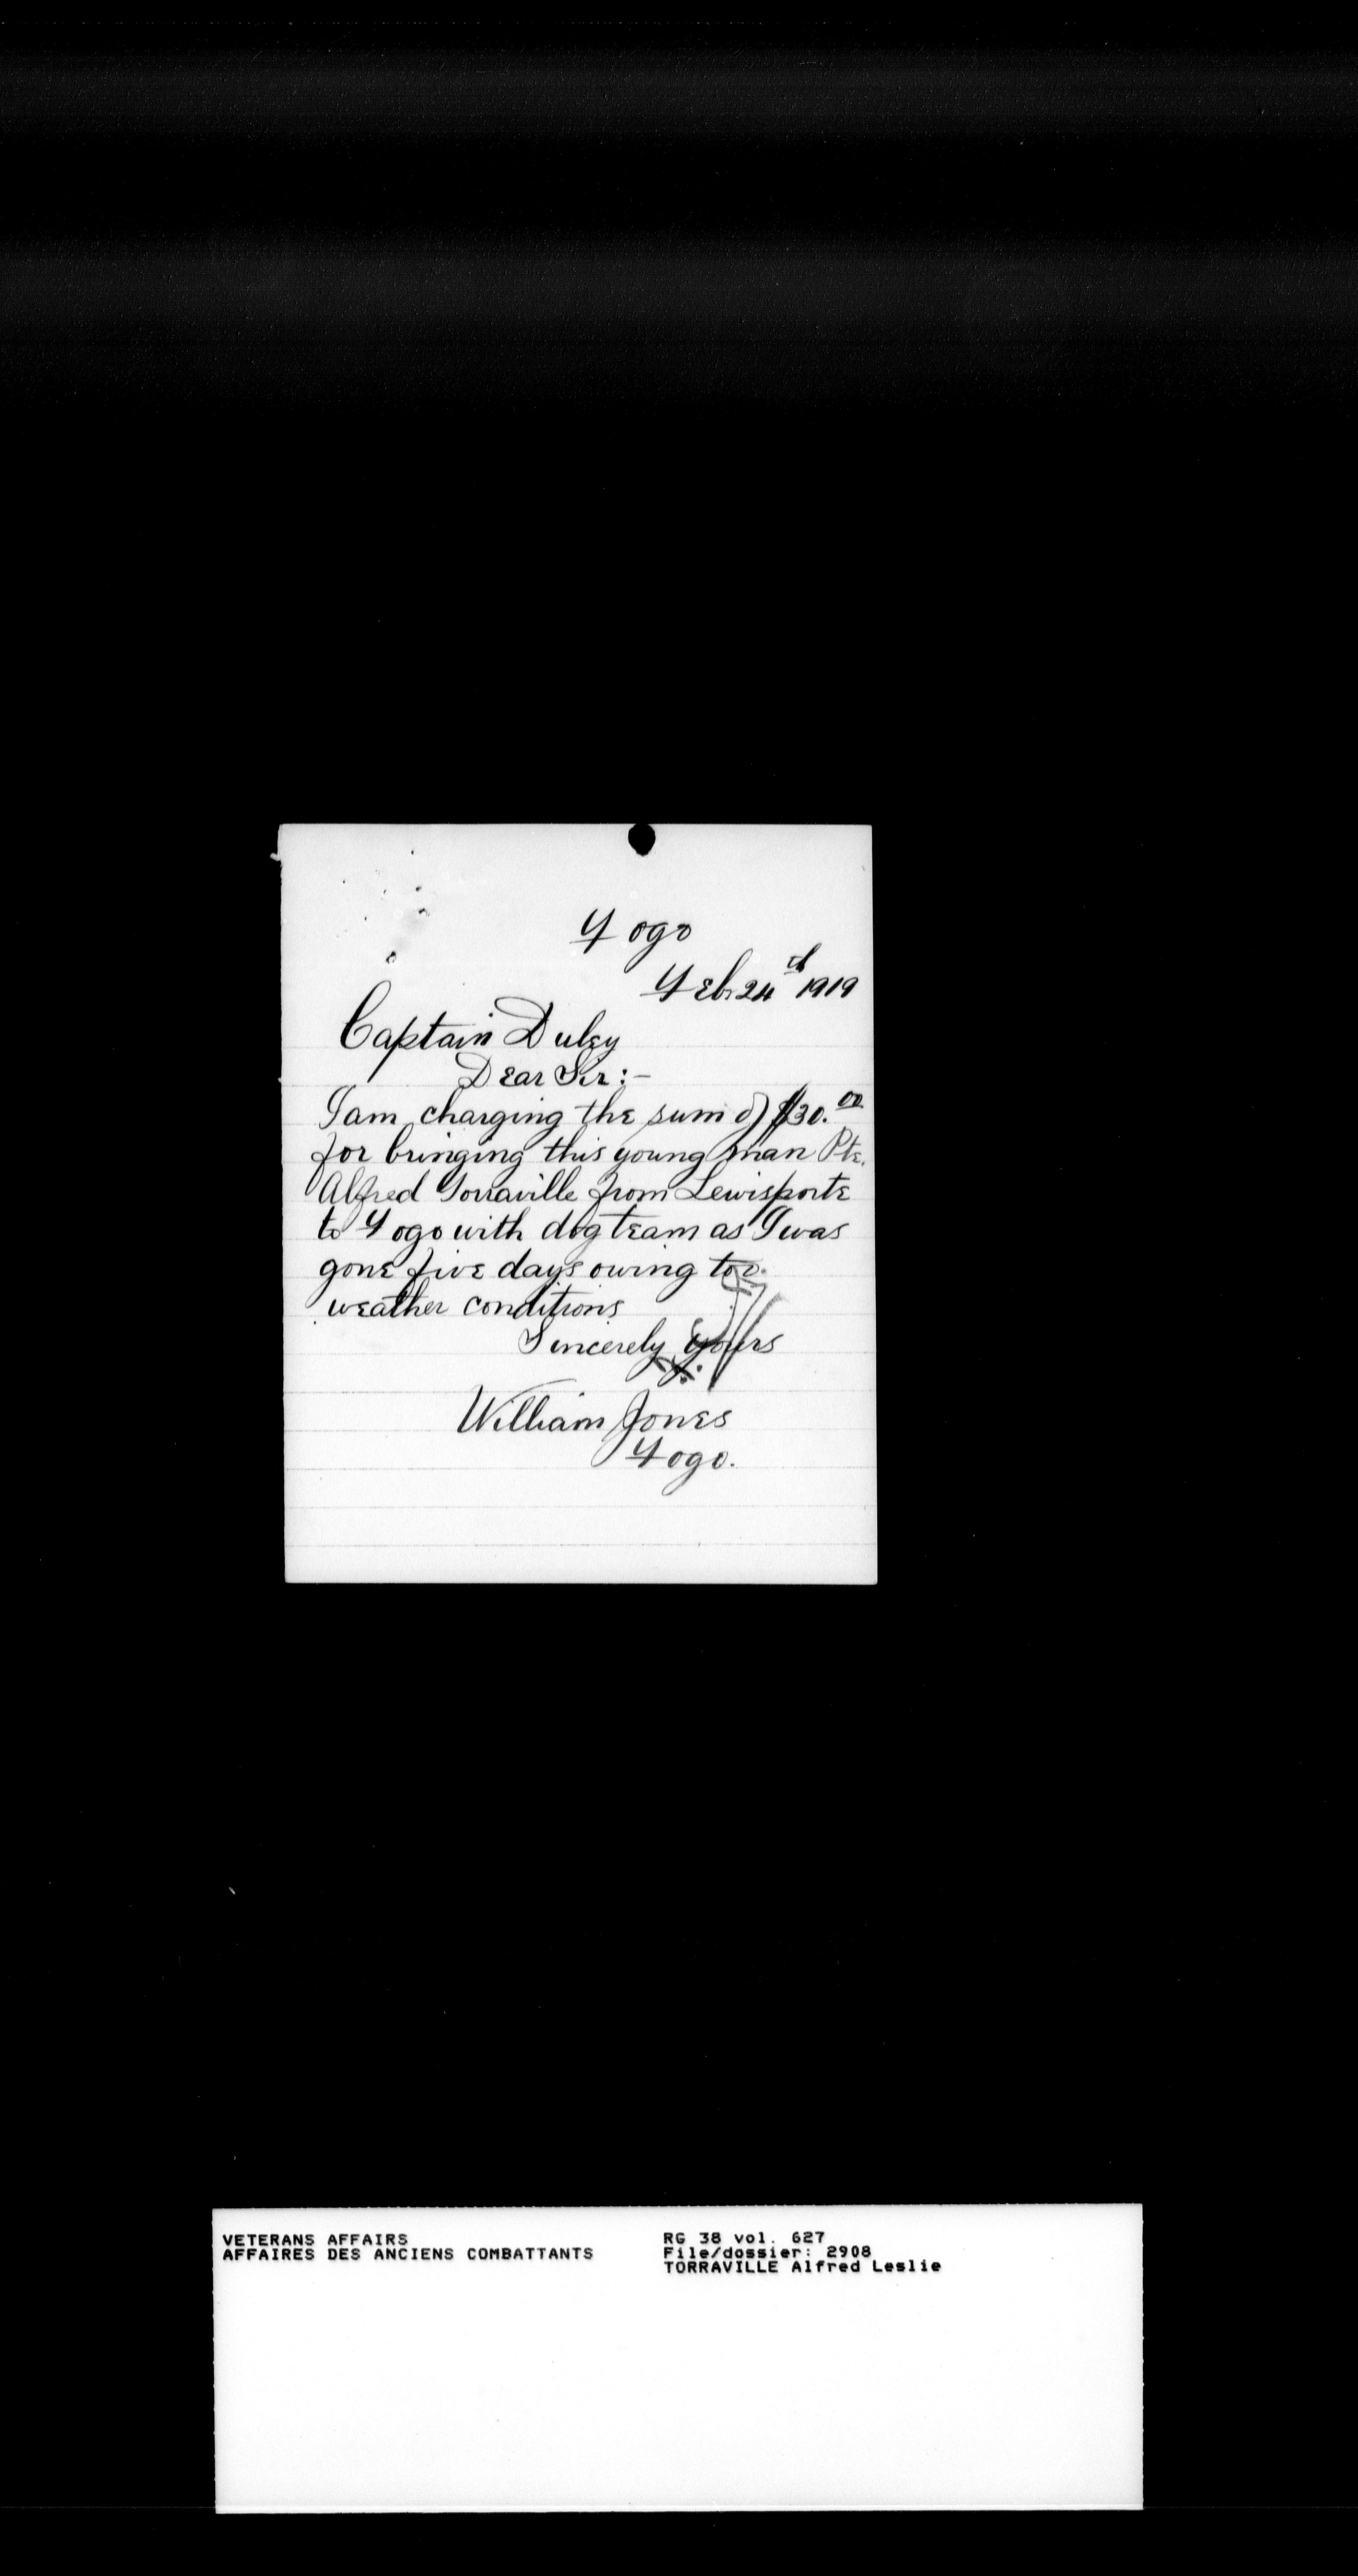 Fogo
Feb. 24th 1919
Captain Duley
Dear Sir:-
I am charging the sum of $30.00
for bringing this young man Pte.
Alfred Torraville from Lewisporte
to Fogo with dog team as I was
gone five days owing too
weather conditions
Sincerely yours
William Jones
Fogo.
VETERANS AFFAIRS
AFFAIRES DES ANCIENS COMBATTANTS
RG 38 vol. 627
File/dossier: 2908
TORRAVILLE Alfred Leslie